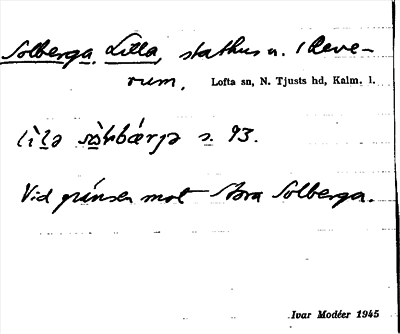 Solberga, Lilla, stathus u. Reve-
rum. Lofta sn, N. Tjusts hd, Kalm. l.
s. 93.
Vid gränsen mot Stora Solberga.
Ivar Modéer 1945